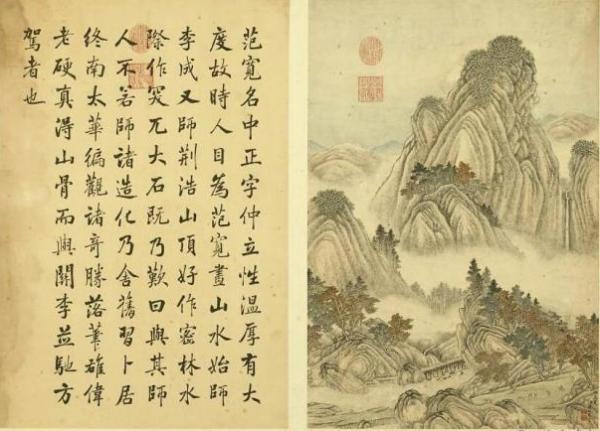 范寬名中正字仲立性温厚有大
度故時人目為范寬畫山水始師
李成又師荆浩山頂好作密林水
際作突兀大石既乃歎曰與其師
人不若師諸造化乃舍舊習卜居
終南太華徧觀諸奇勝落筆雄偉
老硬真得山骨而與關李並馳方
駕者也